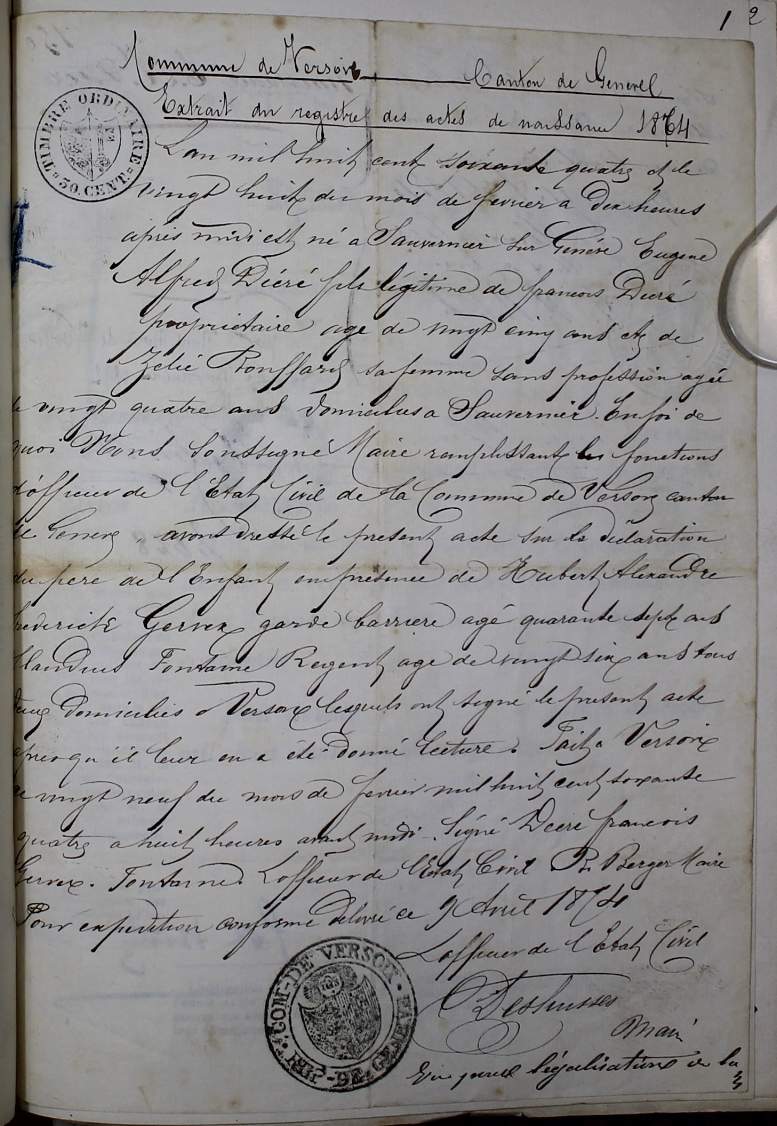 1 2
Commune de Versoix, Canton de Genève
Extrait du registre des actes de naissance 1864
TIMBRE ORDINAIRE
50. CENT.
L'an mil huit cent soixante quatre et le
vingt huit du mois de fevrier a dix heures
après midi est né a Sauvernier sur Genève Eugene
Alfred Décré fils légitime de francois Decré
propriétaire age de vingt cinq ans et de
Zelié Rouffard sa femme sans profession agée
de vingt quatre ans domiciliés a Sauvernier. En foi de
quoi Nous Soussigné Maire remplissant les fonctions
d'officier de l'Etat Civil de la Commune de Versoix canton
de Geneve avons dressé le present acte sur la déclaration
du pere de l'Enfant en présence de Hubert Alexandre
frederick Gervex garde barriere agé quarante sept ans
Claudius Fontaine Regent age de vingt six ans tous
deux domiciliés a Versoix lesquels ont signé le present acte
apres qu'il leur en a été donné lecture. Fait a Versoix
le vingt neuf du mois de fevrier mil huit cent soixante
quatre a huit heures avant midi. Signé Decré francois
Gervex. Fontaine. L'officier de l'Etat Civil Berger Maire
Pour expedition conforme délivré ce 9 Avril 1874
L'officier de l'Etat Civil
COM. DE VERSOIX
Deshusses
Maire
légalisation de la